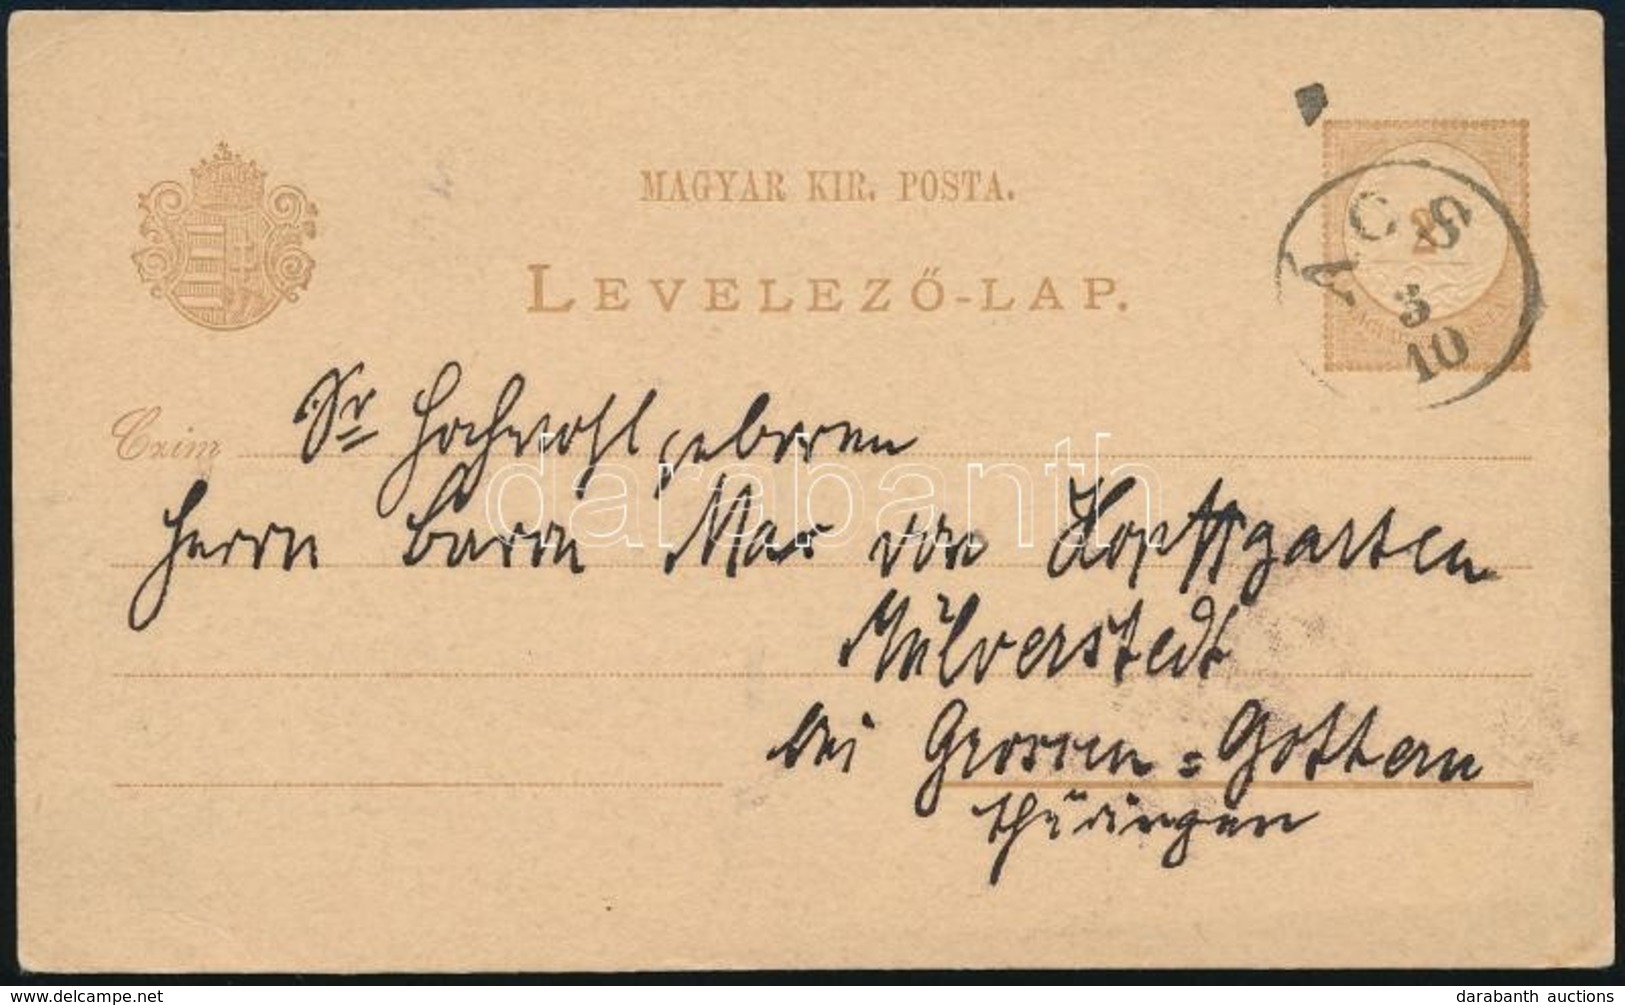 MAGYAR KIR. POSTA.
LEVELEZŐ-LAP.
2
MAGYAR POSTA
ÁCS
3
10
Czim
Sr Hochwohlgeboren
Herrn Baron Max von Hopffgarten
Mülverstedt
bei Grossen=Gottern
Thüringen
darabanth
darabanth auctions